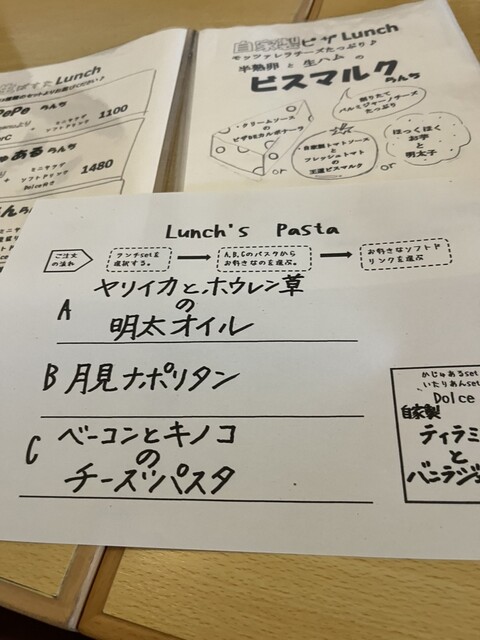 Lunch
PePe らんち
ミニサラダ
ソフトドリンク
1100
ゅある らんち
ミニサラダ
ソフトドリンク
Dolce付き
1480
自家製ピザLunch
モッツァレラチーズたっぷり♪
半熟卵と生ハムの
ビスマルクらんち
・クリームソースの
ピザdeカルボナーラ
or
・自家製トマトソースと
フレッシュトマトの
王道ビスマルク
削りたて
たっぷり
or
ほっくほく
お芋
と
明太子
Lunch's Pasta
ご注文の流れ
ランチsetを
選択する。
A,B,Cのパスタから
お好きなのを選ぶ。
お好きなソフトド
リンクを選ぶ
A ヤリイカとホウレン草
の
明太オイル
B 月見ナポリタン
C ベーコンとキノコ
の
チーズパスタ
かじゅあるset
いたりあんset
Dolce
自家製
ティラミ
と
バニラジ